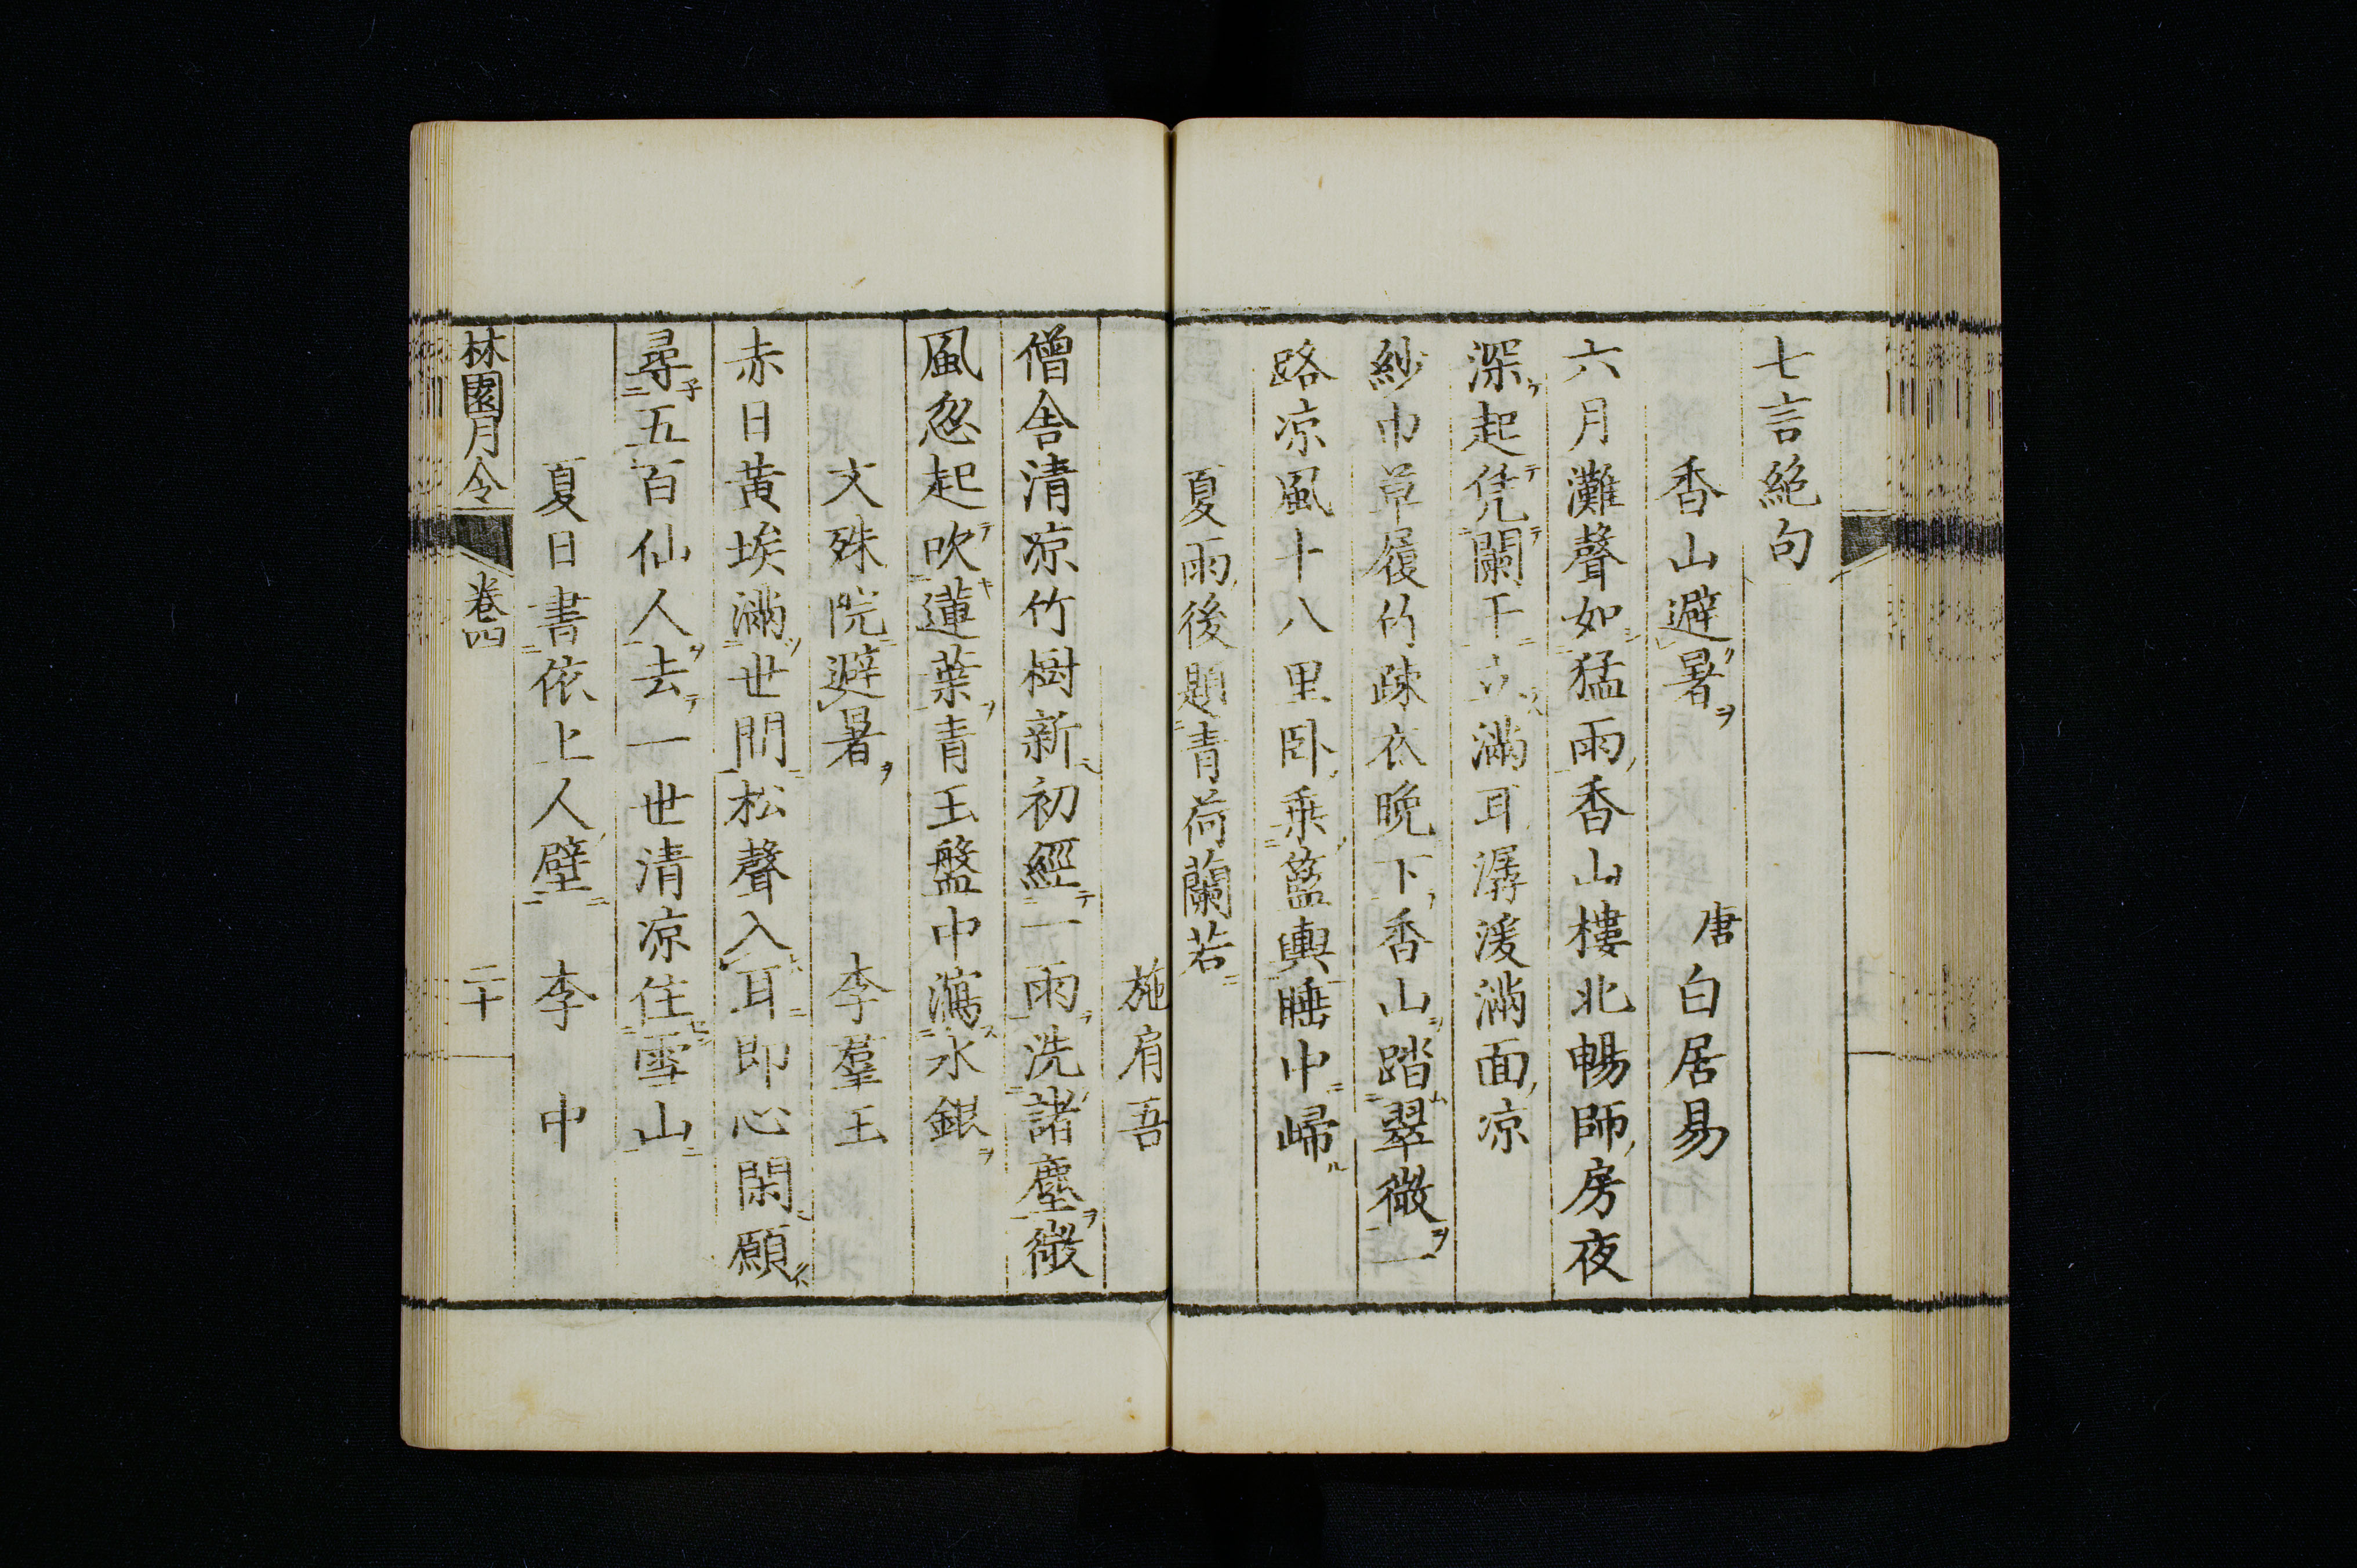 七言絶句
香山避暑 唐 白居易
六月灘聲如猛雨香山樓北暢師房夜
深起凭闌干立滿耳潺湲滿面凉
紗巾草履竹疎衣晚下香山踏翠微一
路凉風十八里卧乗籃輿睡中歸
夏雨後題青荷蘭若
施肩吾
僧舎清凉竹樹新初經一雨洗諸塵微
風忽起吹蓮葉青玉盤中瀉水銀
文殊院避暑 李羣玉
赤日黄埃滿世間松聲入耳即心閑願
尋五百仙人去一世清凉住雪山
夏日書依上人壁 李中
林園月令 卷四 二十